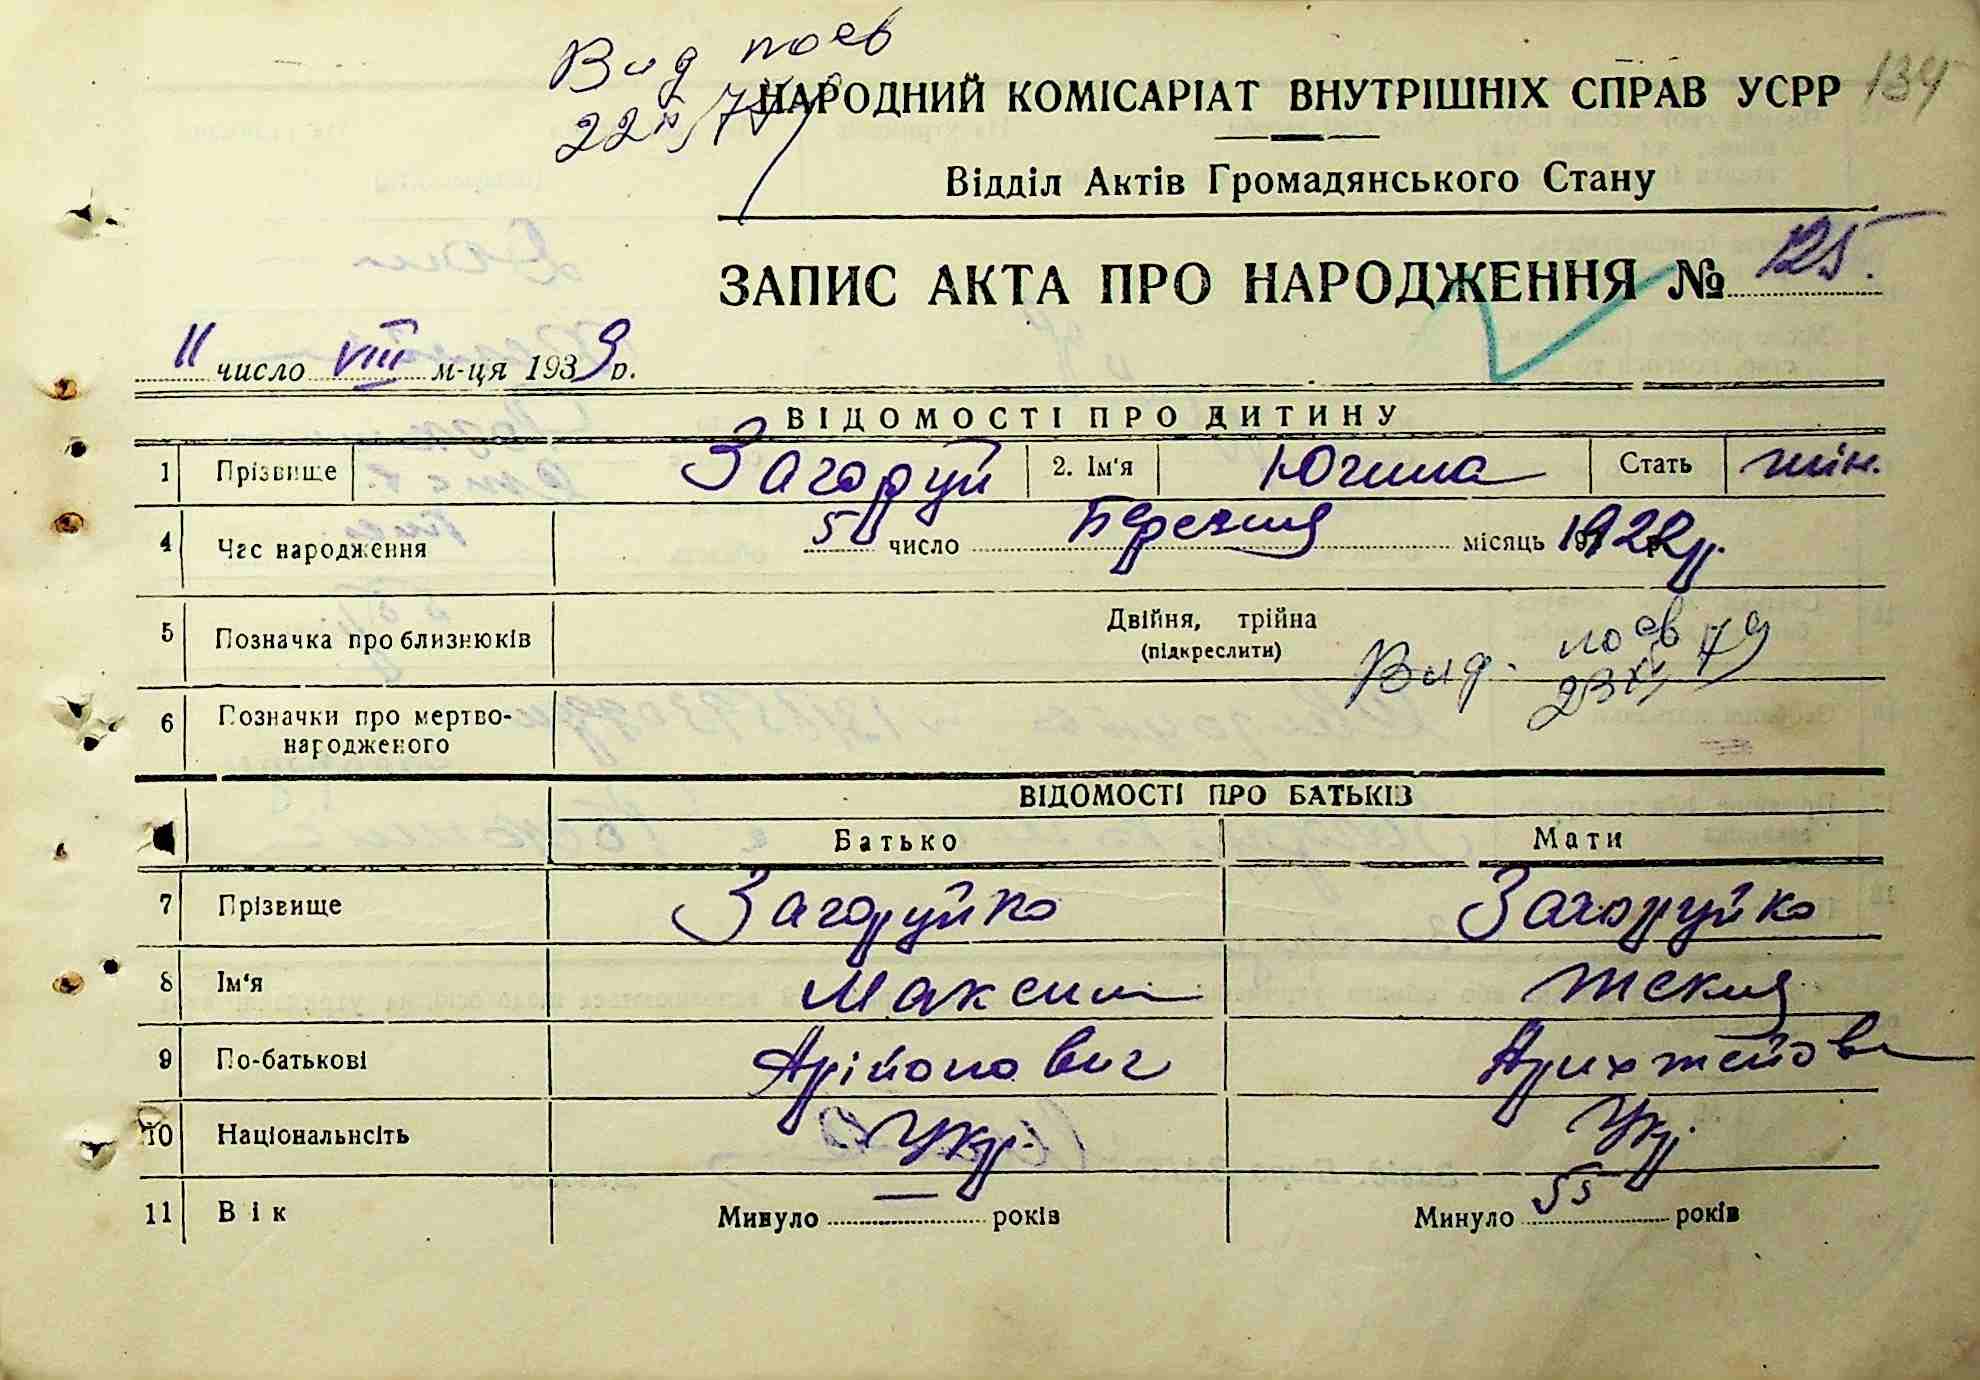 Вид пов
НАРОДНИЙ КОМІСАРІАТ ВНУТРІШНІХ СПРАВ УСРР 134
Відділ Актів Громадянського Стану
ЗАПИС АКТА ПРО НАРОДЖЕННЯ № 125.
11 число VIII м-ця 1939 р.
ВІДОМОСТІ ПРО ДИТИНУ
1 Прізвище Загоруй 2. Ім'я Югина Стать жін.
4 Час народження 5 число Березня місяць 1922 р.
5 Позначка про близнюків Двійня, трійна
(підкреслити)
Вид. пов
23 XI 79
6 Позначки про мертво-
народженого
ВІДОМОСТІ ПРО БАТЬКІВ
Батько Мати
7 Прізвище Загоруйко Загоруйко
8 Ім'я Максим
9 По-батькові
10 Національність Укр. Укр.
11 Вік Минуло — років Минуло 55 років